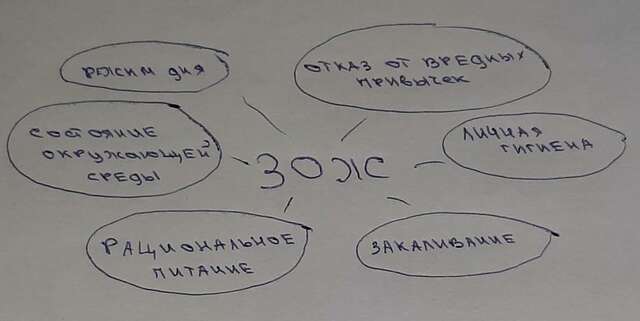 РЕЖИМ ДНЯ
ОТКАЗ ОТ ВРЕДНЫХ
ПРИВЫЧЕК
СОСТОЯНИЕ
ОКРУЖАЮЩЕЙ
СРЕДЫ
ЗОЖ
ЛИЧНАЯ
ГИГИЕНА
РАЦИОНАЛЬНОЕ
ПИТАНИЕ
ЗАКАЛИВАНИЕ